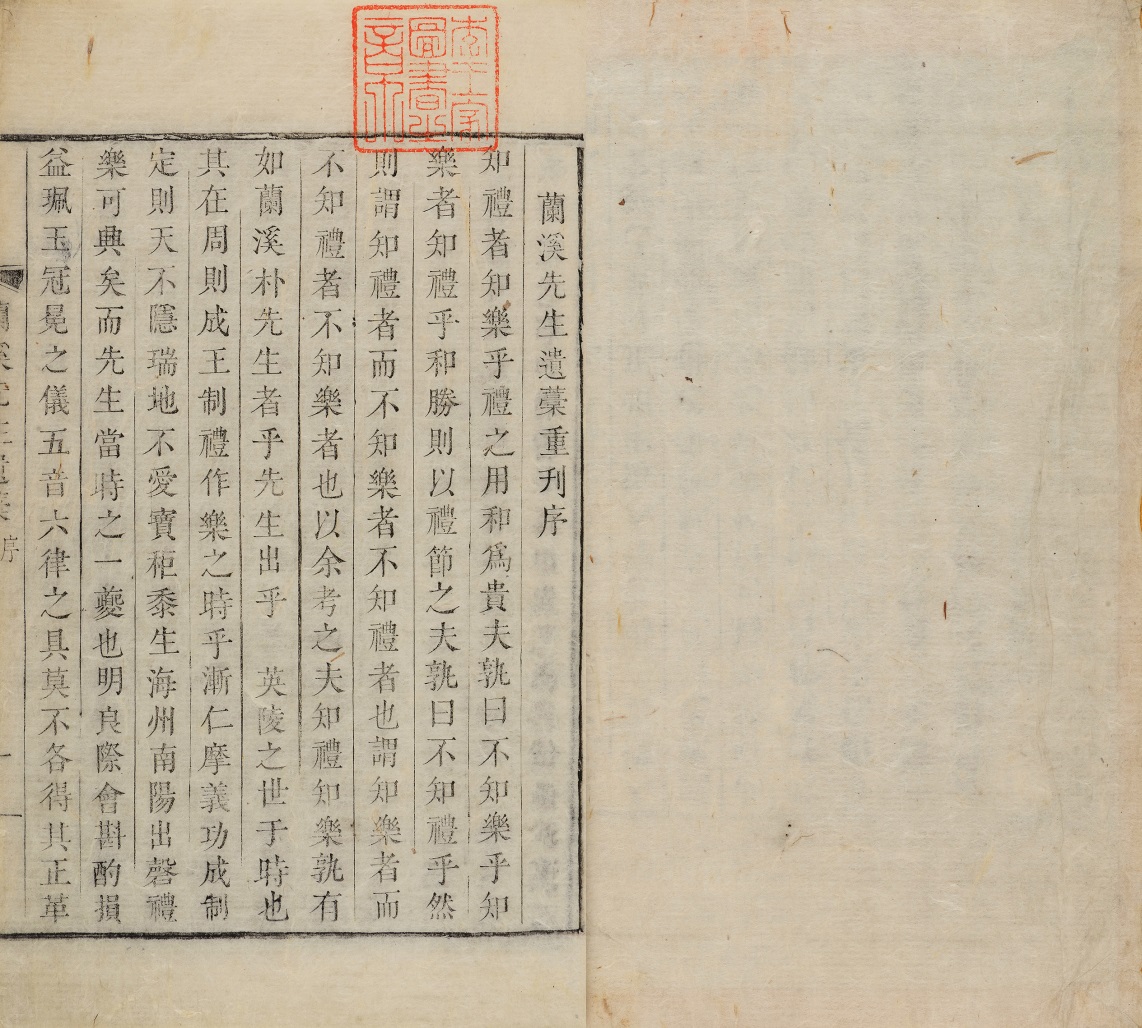 蘭溪先生遺藁重刊序
知禮者知樂乎禮之用和爲貴夫孰曰不知樂乎知
樂者知禮乎和勝則以禮節之夫孰曰不知禮乎然
則謂知禮者而不知樂者不知禮者也謂知樂者而
不知禮者不知樂者也以余考之夫知禮知樂孰有
如蘭溪朴先生者乎先生出乎 英陵之世于時也
其在周則成王制禮作樂之時乎漸仁摩義功成制
定則天不隱瑞地不愛寶秬黍生海州南陽出磬禮
樂可興矣而先生當時之一夔也明良際會斟酌損
益珮玉冠冕之儀五音六律之具莫不各得其正革
蘭溪先生遺藁 序 一